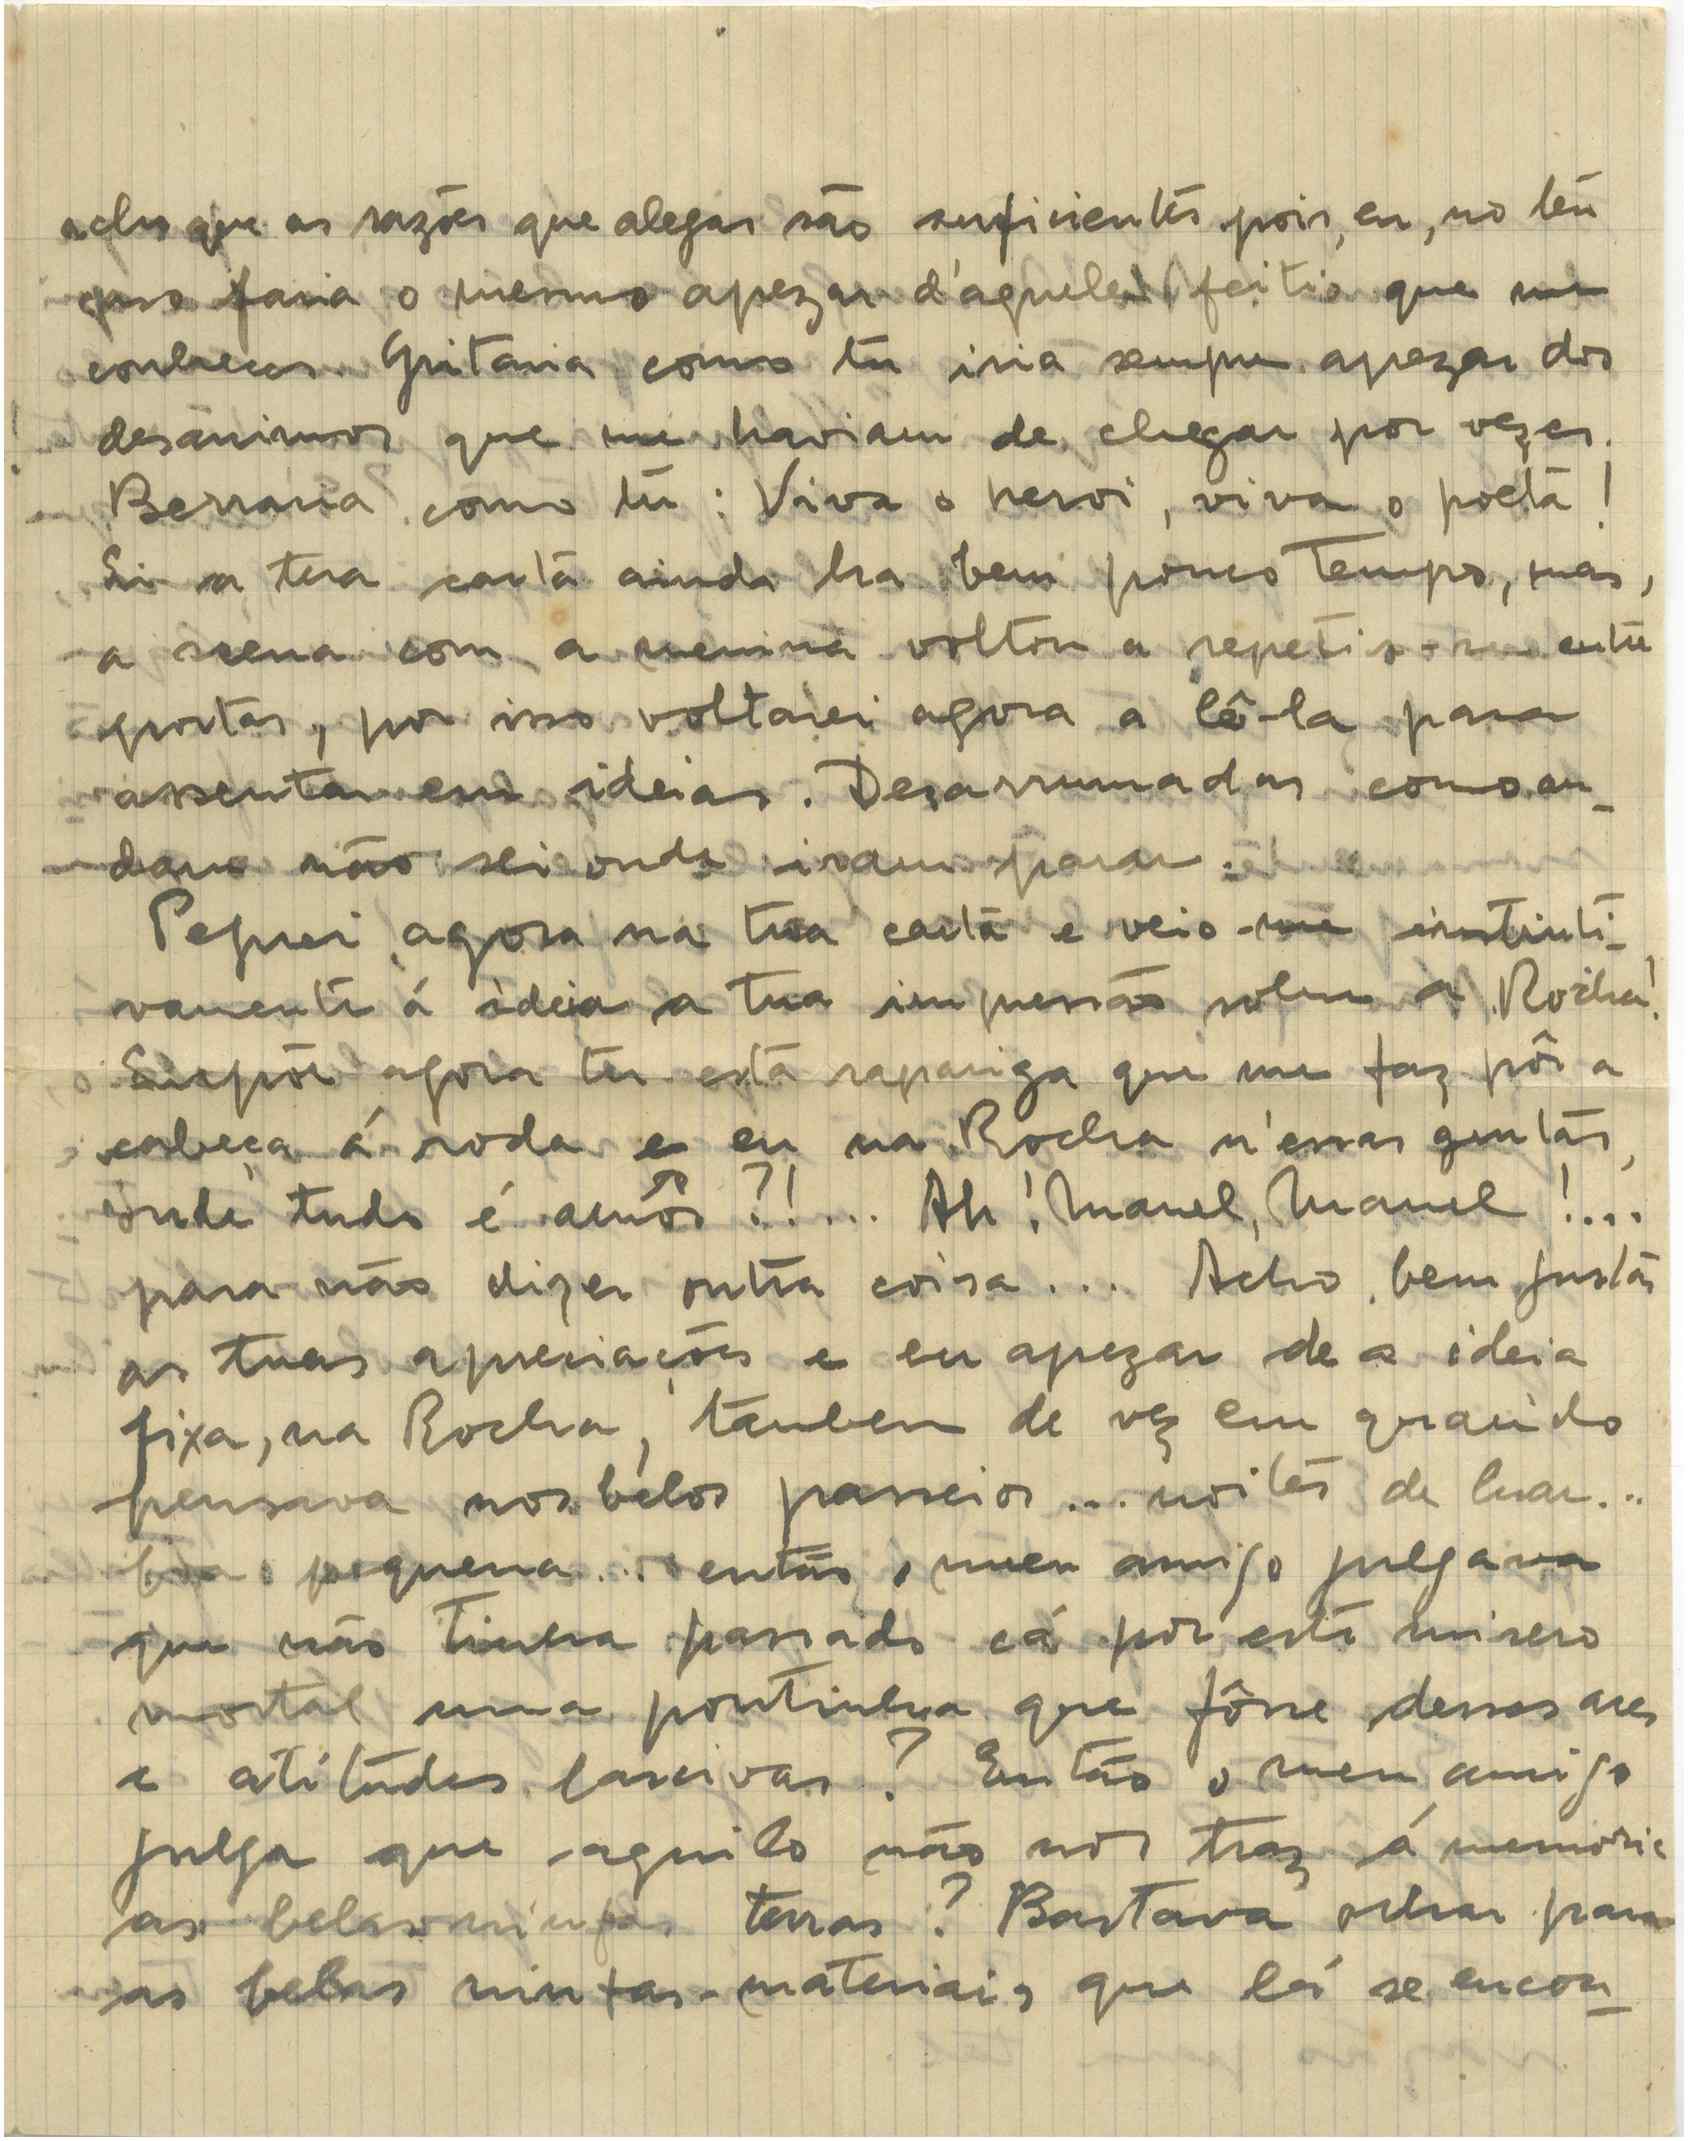 acho que as razões que alegas são suficientes pois, eu, no teu
caso faria o mesmo apezar d'aquele feitio que me
conheces. Gritaria como tu iria sempre apezar dos
desânimos que me haviam de chegar por vezes.
Berraria como tu: Viva o heroi, viva o poeta!
Li a tua carta ainda ha bem pouco tempo, mas,
a scena com a menina voltou a repetir-se entre
portas, por isso voltarei agora a lê-la para
assentar em ideias. Desarrumadas como an-
dam não sei onde iram parar.
Peguei agora na tua carta e veio-me instinti-
vamente á ideia a tua impressão sobre a Rocha!
Supõe agora tu esta rapariga que me faz pôr a
cabeça á roda e eu na Rocha n'essas grutas,
onde tudo é amôr?!... Ah! Manel, Manel!...
para não dizer outra coisa... Acho bem justas
as tuas apreciações e eu apezar de a ideia
fixa, na Rocha, tambem de vez em quando
pensava nos bélos passeios... noites de luar...
boa pequena... então o meu amigo julgava
que não tinha passado cá por este misero
mortal uma pontinha que fôsse desses ares
e atitudes lascivas? Então o meu amigo
julga que aquilo não nos traz á memoria
as belas ninfas terras? Bastava olhar para
as belas ninfas-materiais que lá se encon-